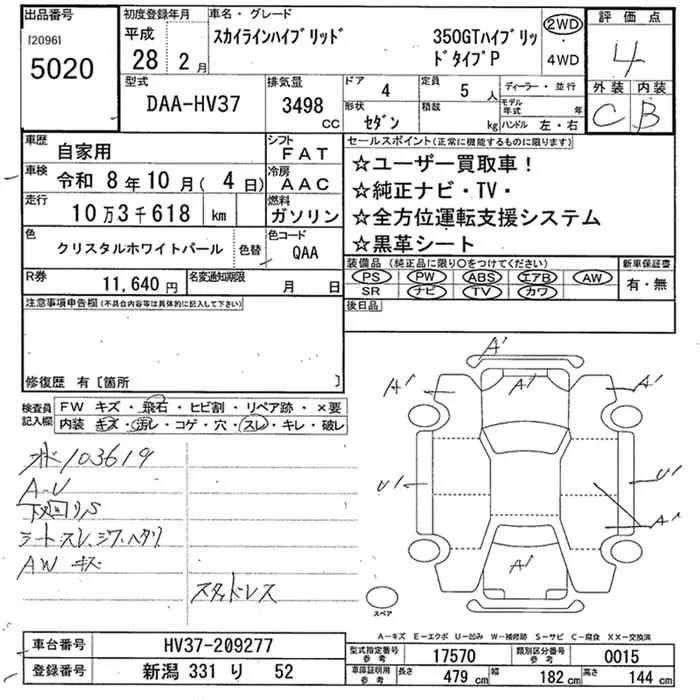 出品番号
[2096]
5020
初度登録年月
平成
28年 2月
車名・グレード
スカイラインハイブリッド
350GTハイブリッ
ドタイプP
2WD
・
4WD
評価点
4
外装 内装
C B
型式
DAA-HV37
排気量
3498
CC
ドア
4
定員
5人
形状
セダン
積載
kg
ディーラー・並行
モデル年式 年
ハンドル 左・右
車歴
自家用
シフト
FAT
車検
令和 8年10月( 4日)
冷房
AAC
走行
10万3千618 km
燃料
ガソリン
色
クリスタルホワイトパール
色替
色コード
QAA
R券
11,640円
名変通知期限
月 日
セールスポイント(正常に機能するものに限ります)
☆ユーザー買取車!
☆純正ナビ・TV・
☆全方位運転支援システム
☆黒革シート
装備品(純正品に限り○をつけてください)
PS PW ABS エアB AW
SR ナビ TV カワ
新車保証書
有・無
後日品
注意事項申告欄(不具合内容等は具体的に記入して下さい)
修復歴 有〔箇所 〕
検査員記入欄
FW キズ・飛石・ヒビ割・リペア跡・×要
内装 キズ・汚レ・コゲ・穴・スレ・キレ・破レ
103619
A-U
下廻りS
シートスレ、シワ、ヘタリ
AW キズ
スタッドレス
A'
A'
A'
A'
U'
U'
A'
A'
スペア
A-キズ E-エクボ U-凹み W-補修跡 S-サビ C-腐食 XX-交換済
車台番号
HV37-209277
登録番号
新潟 331 り 52
型式指定番号
参考
17570
類別区分番号
参考
0015
車庫証明用
参考
長さ
479 cm
幅
182 cm
高さ
144 cm